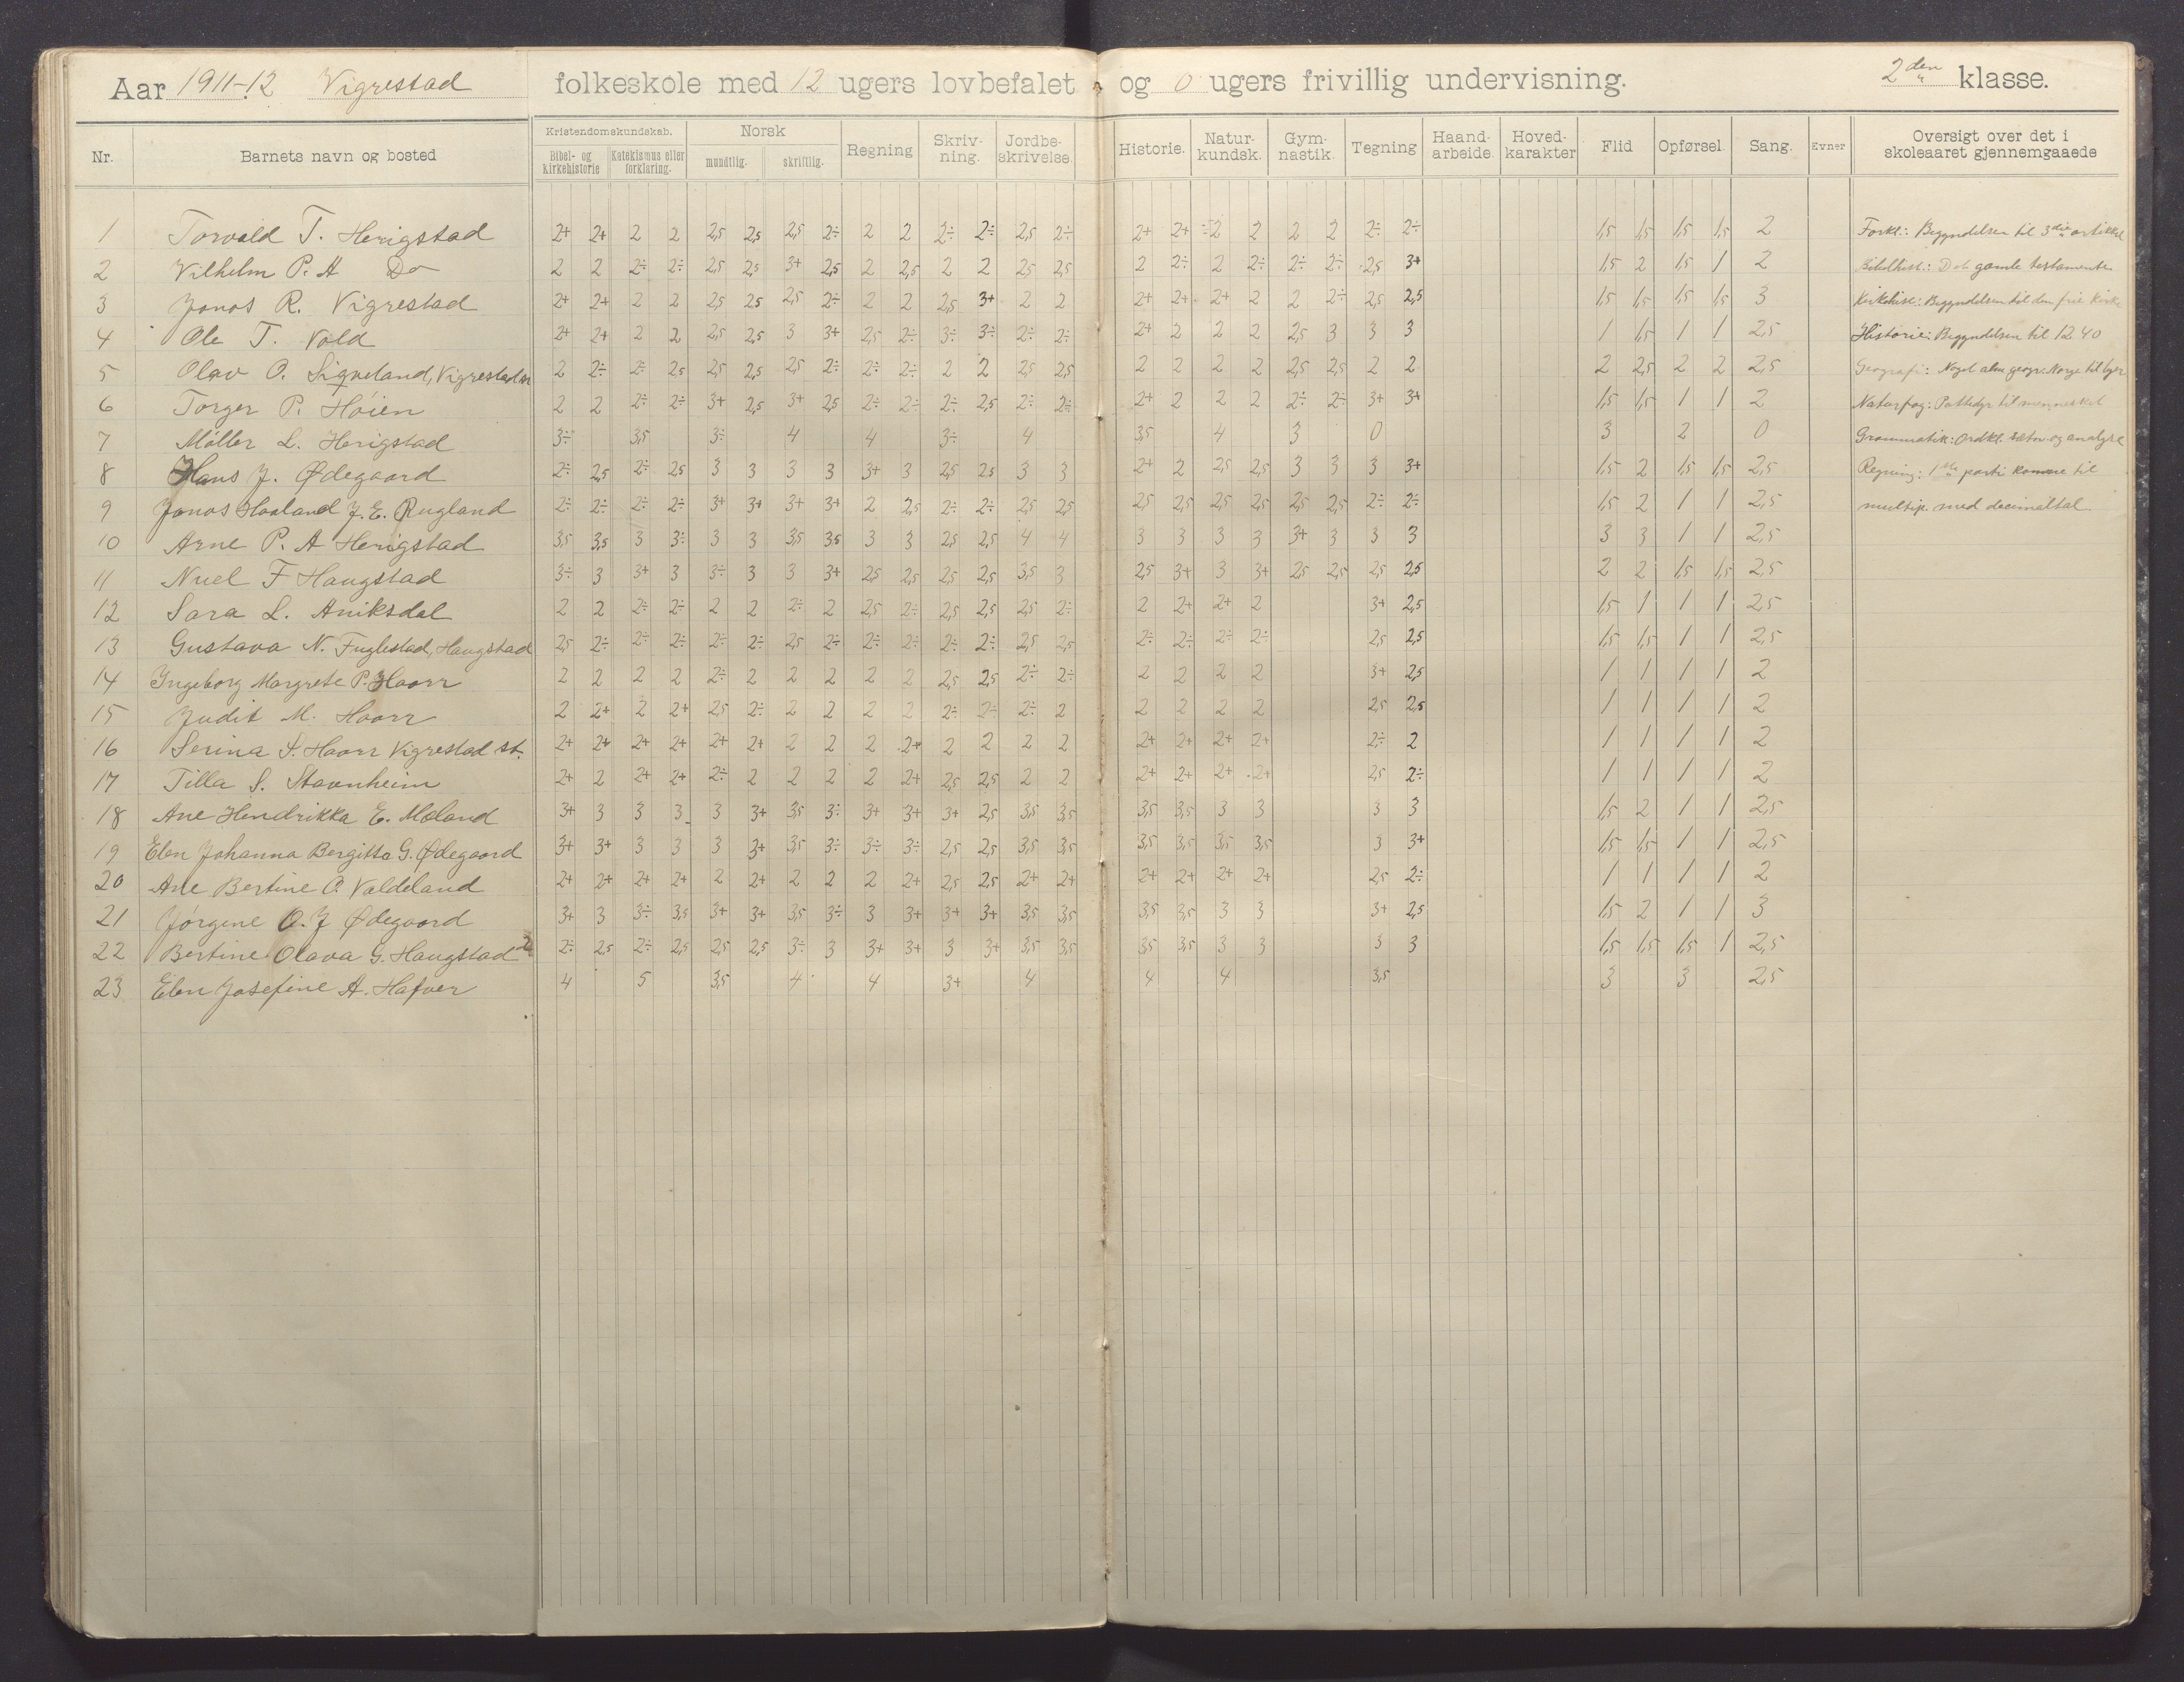 Aar 1911-12 Vigrestad folkeskole med 12 ugers lovbefalet og 0 ugers frivillig undervisning. 2den klasse.
Nr. Barnets navn og bosted Kristendomskundskab. Bibel- og kirkehistorie Katekismus eller forklaring. Norsk mundtlig. skriftlig. Regning Skriv-ning. Jordbe-skrivelse. Historie. Natur-kundsk. Gym-nastik. Tegning Haand-arbeide. Hoved-karakter Flid Opførsel. Sang. Evner Oversigt over det i skoleaaret gjennemgaaede
1 Torvald T. Herigstad 2+ 2+ 2 2 2,5 2,5 2,5 2÷ 2 2 2÷ 2÷ 2,5 2÷ 2+ 2+ ÷2 2 2 2 2÷ 2÷ 1,5 1,5 1,5 1,5 2 Forkl.: Begyndelsen til 3die artikkel
2 Vilhelm P. A Do 2 2 2÷ 2÷ 2,5 2,5 3+ 2,5 2 2,5 2 2 2,5 2,5 2 2÷ 2 2÷ 2÷ 2÷ 2,5 3+ 1,5 2 1,5 1 2 Bibelhist.: Det gamle testamente
3 Jonas R. Vigrestad 2+ 2+ 2 2 2,5 2,5 2,5 2÷ 2 2 2,5 3+ 2 2 2+ 2+ 2+ 2 2 2÷ 2,5 2,5 1,5 1,5 1,5 1,5 3 Kirkehist.: Begyndelsen til den frie kirke
4 Ole T. Vold 2+ 2+ 2 2 2,5 2,5 3 3+ 2,5 2÷ 3÷ 3÷ 2÷ 2÷ 2+ 2 2 2 2,5 3 3 3 1 1,5 1 1 2,5 Historie: Begyndelsen til 1240
5 Olav O. Sigveland, Vigrestad st 2 2÷ 2÷ 2,5 2,5 2,5 2,5 2÷ 2÷ 2÷ 2 2 2,5 2,5 2 2 2 2 2,5 2,5 2 2 2 2,5 2 2 2,5 Geografi: Noget alm. geogr. Norge til
6 Torger P. Høien 2 2 2÷ 2÷ 3+ 2,5 3+ 2,5 2÷ 2÷ 2÷ 2,5 2÷ 2÷ 2+ 2 2 2 2÷ 2÷ 3+ 3+ 1,5 1,5 1 1 2 Naturfag: Pattedyr til mennesket
7 Møller L. Herigstad 3÷ 3,5 3÷ 4 4 3÷ 4 3,5 4 3 0 3 2 0 Grammatik: Ordkl. sætn. og analyse
8 Hans J. Ødegaard 2÷ 2,5 2÷ 2,5 3 3 3 3 3+ 3 2,5 2,5 3 3 2+ 2 2,5 2,5 3 3 3 3+ 1,5 2 1,5 1,5 2,5 Regning: 1ste parti komme til
9 Jonas Haaland J. E. Rugland 2÷ 2÷ 2÷ 2÷ 3+ 3+ 3+ 3+ 2 2,5 2÷ 2÷ 2,5 2,5 2,5 2,5 2,5 2,5 2,5 2,5 2÷ 2÷ 1,5 2 1 1 2,5 multip. med decimaltal
10 Arne P. A Herigstad 3,5 3,5 3 3÷ 3 3 3,5 3,5 3 3 2,5 2,5 4 4 3 3 3 3 3+ 3 3 3 3 3 1 1 2,5
11 Nuel F Haugstad 3÷ 3 3+ 3 3÷ 3 3 3+ 2,5 2,5 2,5 2,5 3,5 3 2,5 3+ 3 3+ 2,5 2,5 2,5 2,5 2 2 1,5 1,5 2,5
12 Sara L. Aniksdal 2 2 2÷ 2÷ 2 2 2÷ 2 2,5 2÷ 2,5 2,5 2,5 2÷ 2 2+ 2+ 2 3+ 2,5 1,5 1 1 1 2,5
13 Gustava N. Fuglestad, Haugstad 2,5 2÷ 2÷ 2÷ 2÷ 2÷ 2,5 2÷ 2÷ 2÷ 2÷ 2÷ 2,5 2,5 2÷ 2÷ 2÷ 2÷ 2,5 2,5 1,5 1,5 1 1 2,5
14 Ingeborg Margrete P. Haarr 2 2 2 2 2÷ 2 2 2 2 2 2,5 2,5 2÷ 2÷ 2 2 2 2 3+ 2,5 1 1 1 1 2
15 Judit M. Haarr 2 2+ 2 2+ 2,5 2÷ 2 2 2 2 2÷ 2÷ 2÷ 2 2 2 2 2 2,5 2,5 1 1 1 1 2
16 Serina S. Haarr Vigrestad st. 2+ 2+ 2+ 2+ 2+ 2+ 2 2 2 2+ 2 2 2 2 2+ 2+ 2+ 2+ 2÷ 2 1 1 1 1 2
17 Tilla S. Stavnheim 2+ 2 2+ 2+ 2÷ 2 2 2 2 2+ 2,5 2,5 2 2 2+ 2+ 2+ 2+ 2,5 2÷ 1 1 1 1 2
18 Ane Hendrikka E. Moland 3+ 3 3 3 3 3+ 3,5 3÷ 3+ 3+ 3+ 2,5 3,5 3,5 3,5 3,5 3 3 3 3 1,5 2 1 1 2,5
19 Elen Johanna Bergitta G. Ødegaard 3+ 3+ 3 3 3 3+ 3,5 3÷ 3÷ 3÷ 2,5 2,5 3,5 3,5 3,5 3,5 3,5 3,5 3 3+ 1,5 1,5 1 1 2,5
20 Ane Bertine O. Valdeland 2+ 2+ 2+ 2+ 2 2+ 2 2 2 2+ 2,5 2,5 2+ 2+ 2+ 2+ 2+ 2+ 2,5 2÷ 1 1 1 1 2
21 Jørgine O. J Ødegaard 3+ 3 3÷ 3,5 3+ 3+ 3,5 3÷ 3 3+ 3+ 3+ 3,5 3,5 3,5 3,5 3 3 3+ 2,5 1,5 2 1 1 3
22 Bertine Olava G. Haugstad 2÷ 2,5 2÷ 2,5 2,5 2,5 3÷ 3 3+ 3+ 3 3+ 3,5 3,5 3,5 3,5 3 3 3 3 1,5 1,5 1,5 1 2,5
23 Elen Josefine A. Hafver 4 5 3,5 4 4 3+ 4 4 4 3,5 3 3 2,5